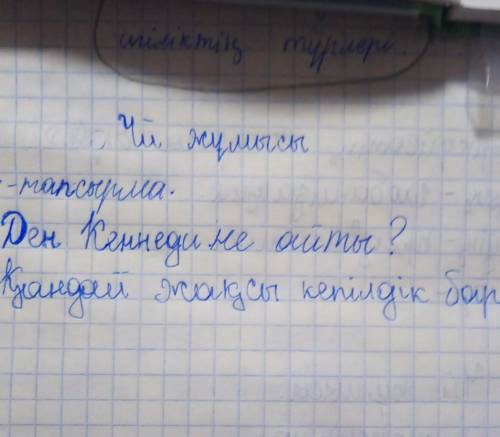 игіліктің түрлері.
Үй жұмысы
-тапсырма.
Ден Кеннеди не айты?
Қандай жақсы кепілдік бар